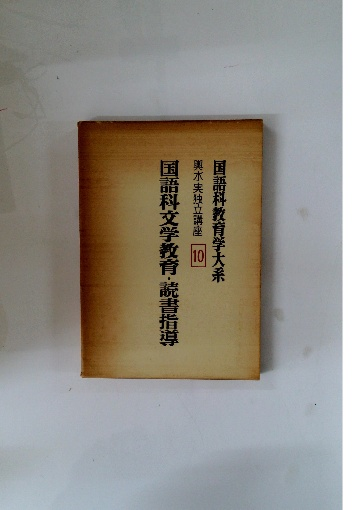 国語科教育学大系
輿水実独立講座
10
国語科文学教育・読書指導